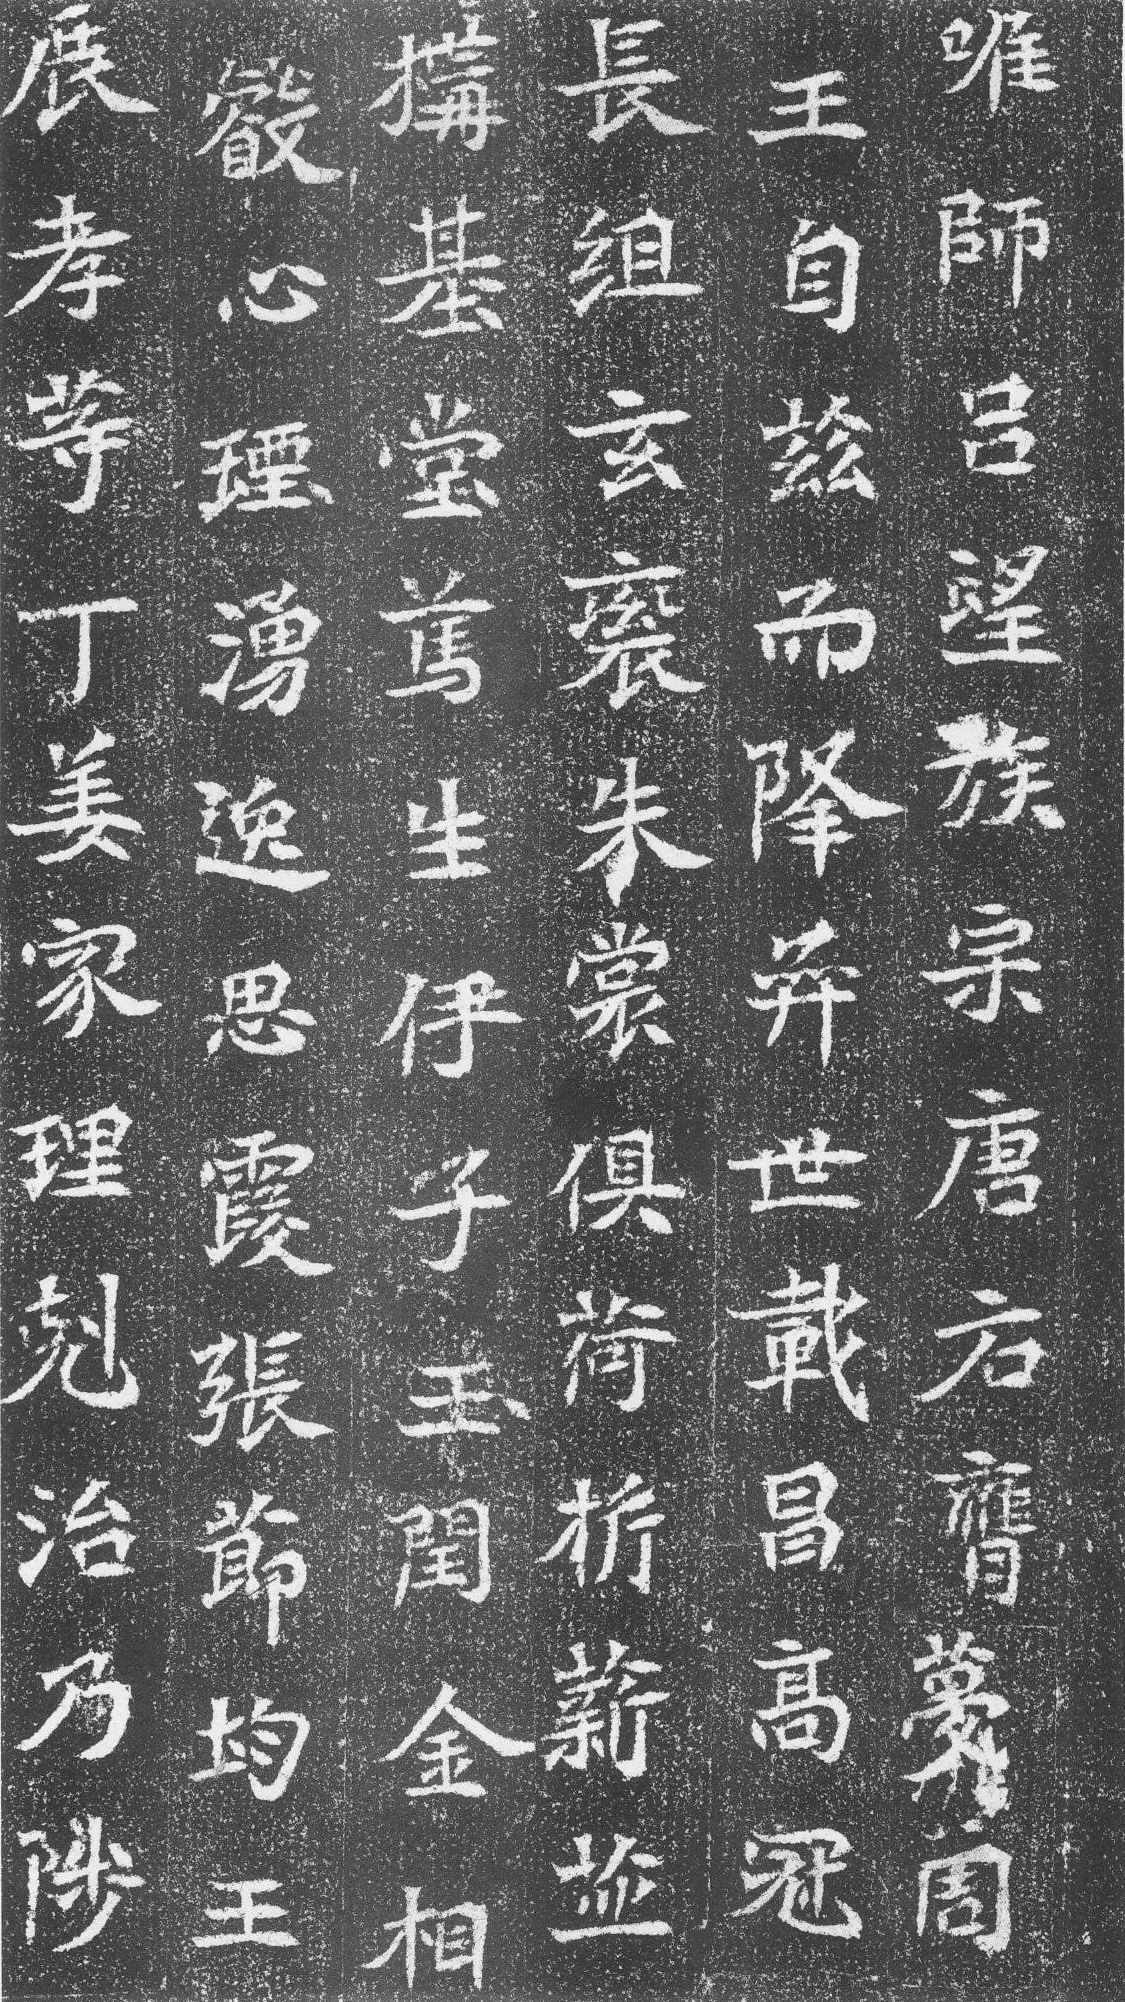 唯師呂望族宗唐右膺夢周
王自茲而降弈世載昌高冠
長組玄袞朱裳俱荷析薪並
搆基堂篤生伊子玉閏金相
叡心煙湧逸思霞張節均王
展孝等丁姜家理剋治乃陟